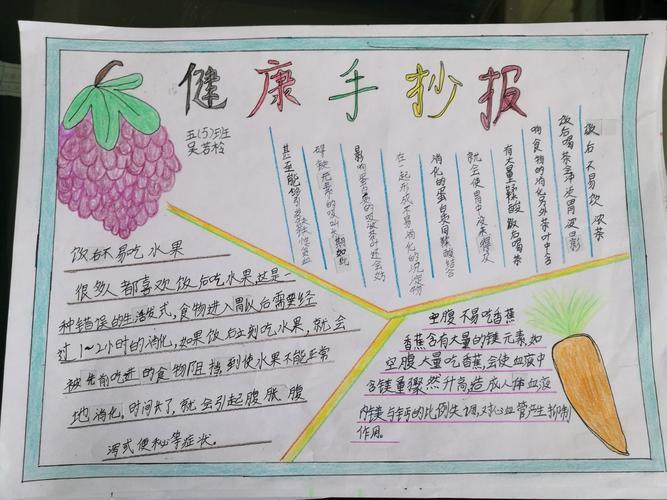 健康手抄报
五(5)班
吴若
饭后不易吃水果
很多人都喜欢饭后吃水果这是一
种错误的生活方式,食物进入胃以后需要经
过1~2小时的消化,如果饭后立刻吃水果,就会
被先前吃进的食物阻挡到使水果不能正常
地消化。时间长了,就会引起腹胀腹
泻或便秘等症状。
饭后不易饮浓茶
饭后喝茶会冲淡胃液影
响食物的消化另外茶叶中含
有大量鞣酸饭后喝茶
就会使胃中没来得及
消化的蛋白质同鞣酸结合
在一起形成不易消化的沉淀物
影响蛋白质的吸收茶叶还会妨
碍铁元素的吸收长期如此
甚至能够引发缺铁性贫血
空腹不易吃香蕉
香蕉含有大量的镁元素,如
空腹大量吃香蕉,会使血液中
含镁量骤然升高造成人体血液
内镁与钙的比例失调,对心血管产生抑制
作用。